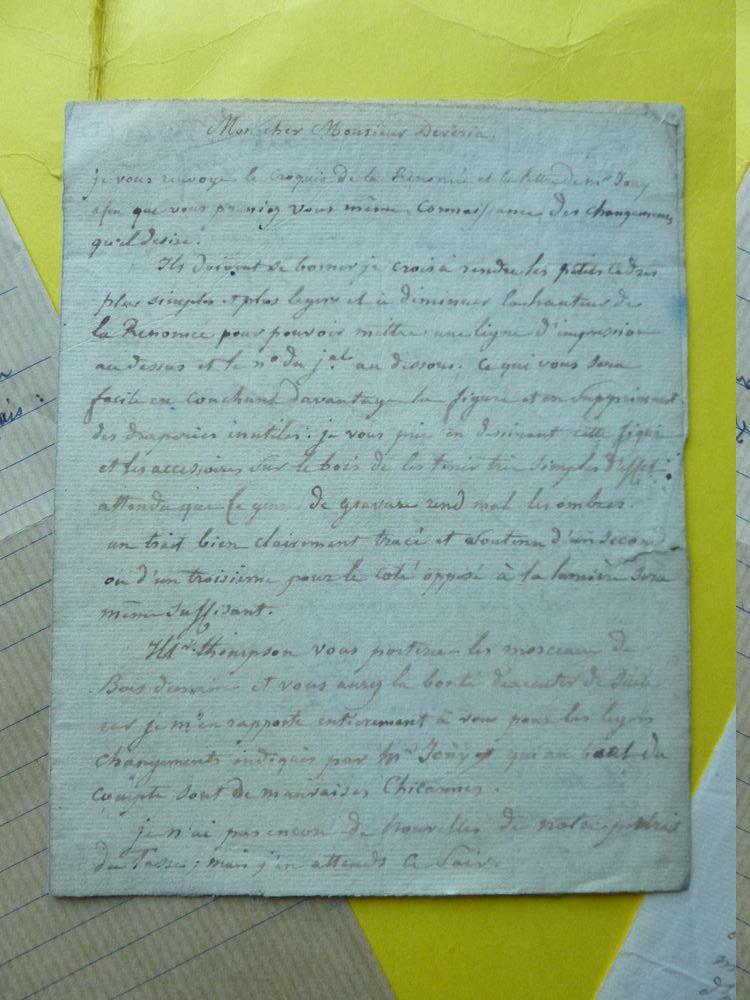 Mon cher Monsieur Deveria,
je vous renvoye le croquis de la Renomée et la lettre de mr. Jouy
afin que vous preniez vous même connaissance des changements
qu'il desire.
Ils doivent se borner je crois à rendre les petits cadres
plus simples et plus legers et à diminuer la hauteur de
la Renomée pour pouvoir mettre une ligne d'impression
au dessus et le no du jal. au dessous. ce qui vous sera
facile en couchant davantage la figure et en supprimant
des draperies inutiles. je vous prie en dessinant cette figure
et les accessoires sur le bois de les tenir très simples d'effet
attendu que ce genre de gravure rend mal les ombres.
un trait bien clairement tracé et soutenu d'un second
ou d'un troisième pour le coté opposé à la lumière sera
même suffisant.
Mr. thompson vous portera les morceaux de
Bois demain et vous aurez la bonté d'executer de suite
car je m'en rapporte entièrement à vous pour les legers
changements indiqués par Mr Jouy et qui au bout du
compte sont de mauvaises Chicannes.
je n'ai pas encore de nouvelles de notre portrait
du Tasse; mais j'en attends ce soir.
ais: